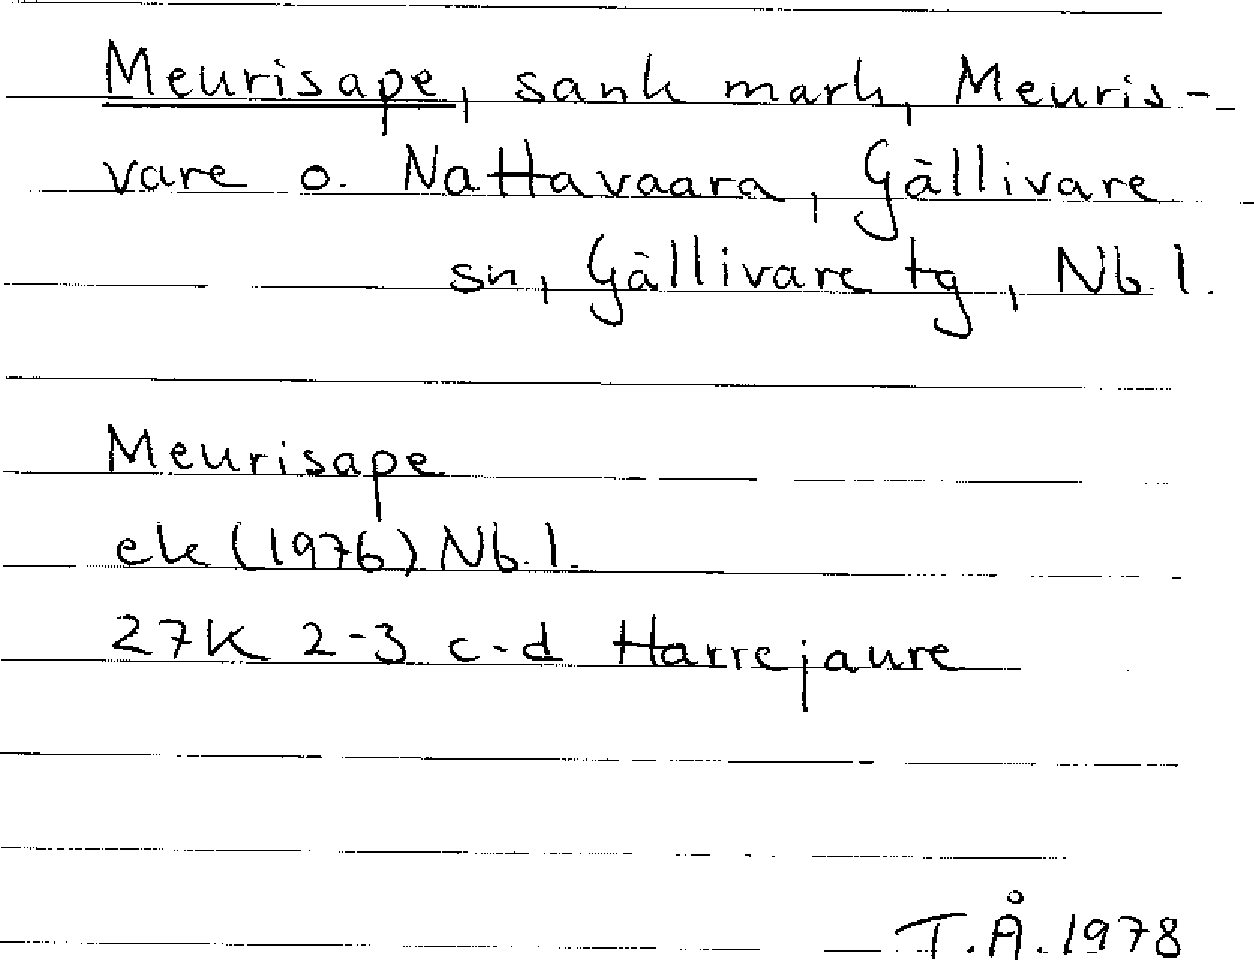 Meurisape, sank mark, Meuris-
vare o. Nattavaara, Gällivare
sn, Gällivare tg, Nb. l.
Meurisape
ek (1976) Nb. l.
27K 2-3 c-d Harrejaure
T.Å. 1978